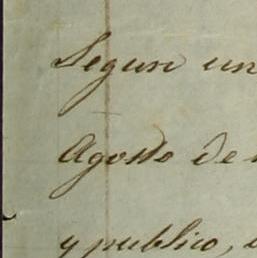 Segun un
Agosto de
y publico,